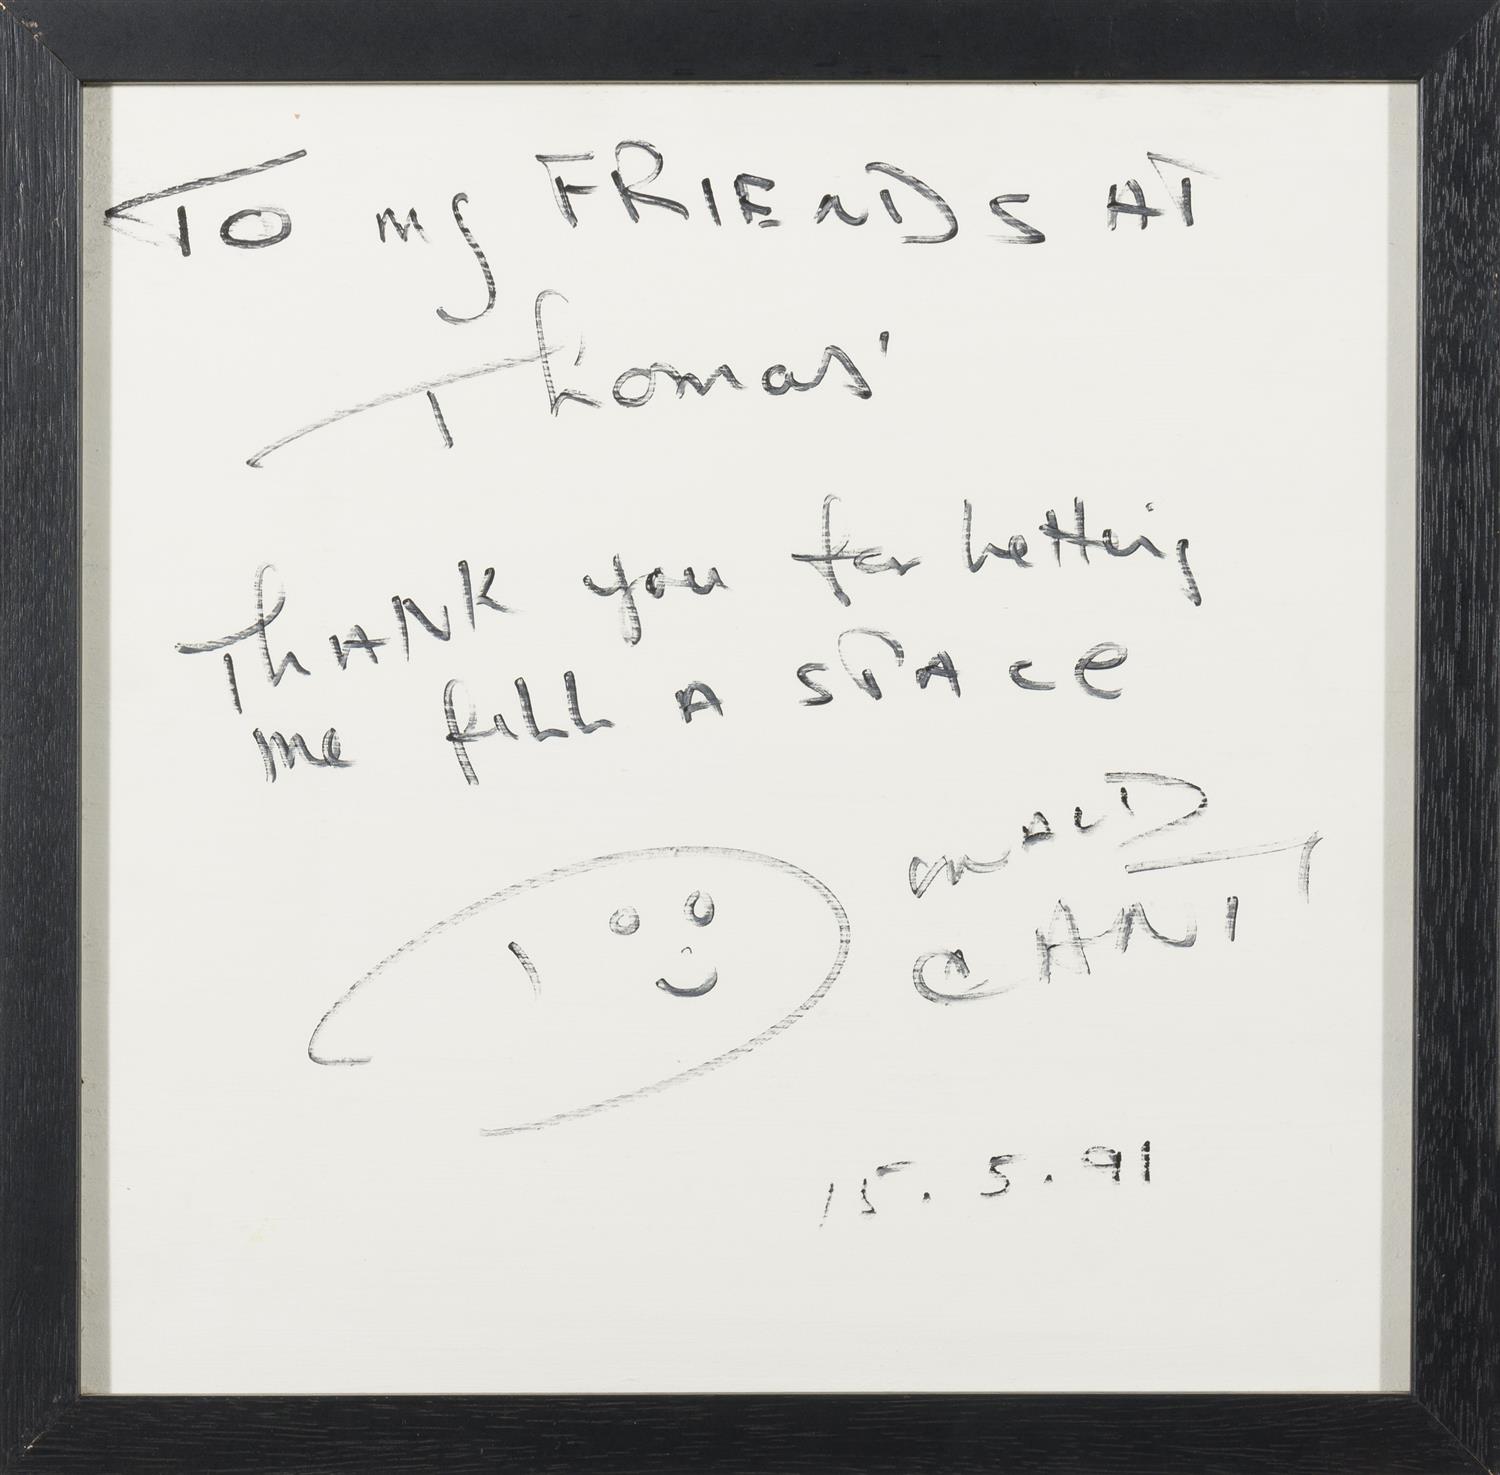 To my FRIENDS AT
Thomas'
Thank you for letting
me fill A SPACE
DONALD
CANT
15.5.91